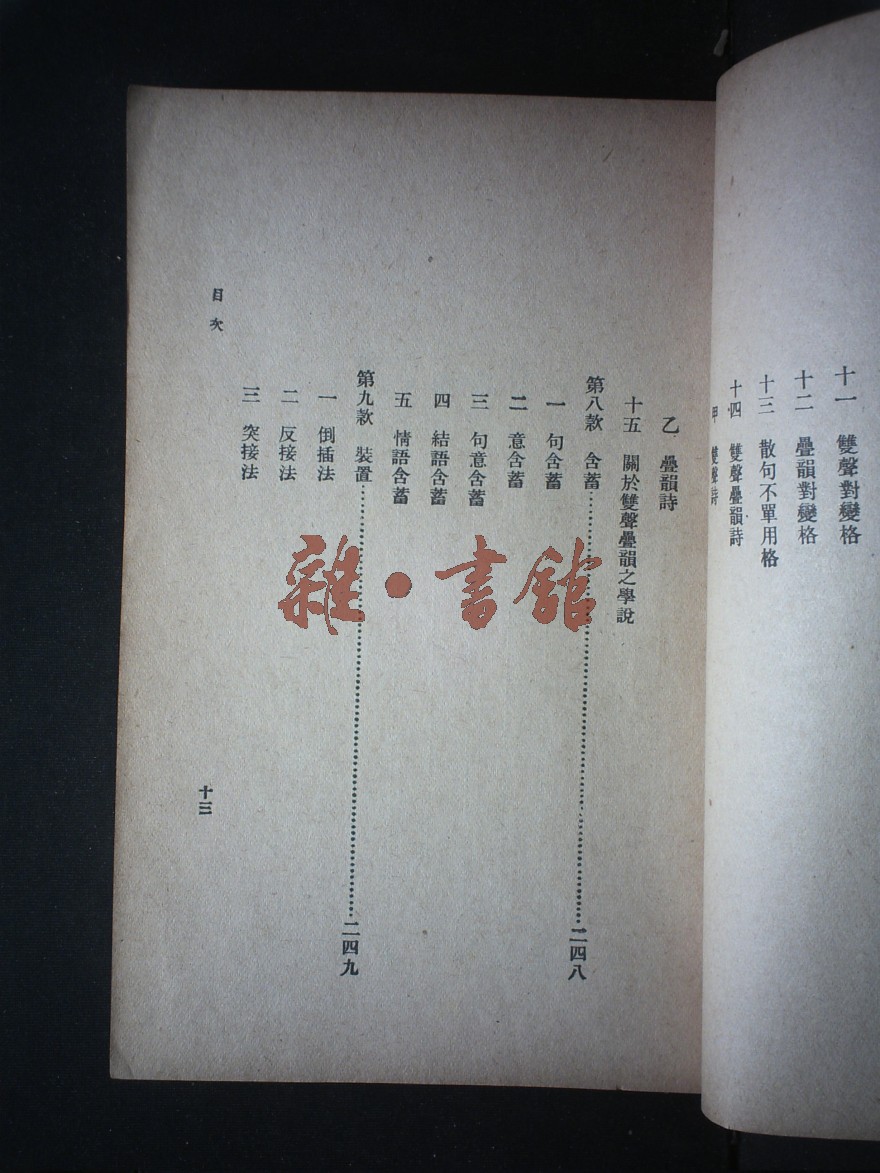 十一　雙聲對變格
十二　疊韻對變格
十三　散句不單用格
十四　雙聲疊韻詩
甲　雙聲詩
乙　疊韻詩
十五　關於雙聲疊韻之學說
第八款　含蓄…………………………二四八
一　句含蓄
二　意含蓄
三　句意含蓄
四　結語含蓄
五　情語含蓄
第九款　裝置…………………………二四九
一　倒插法
二　反接法
三　突接法
目次
十三
雜·書館